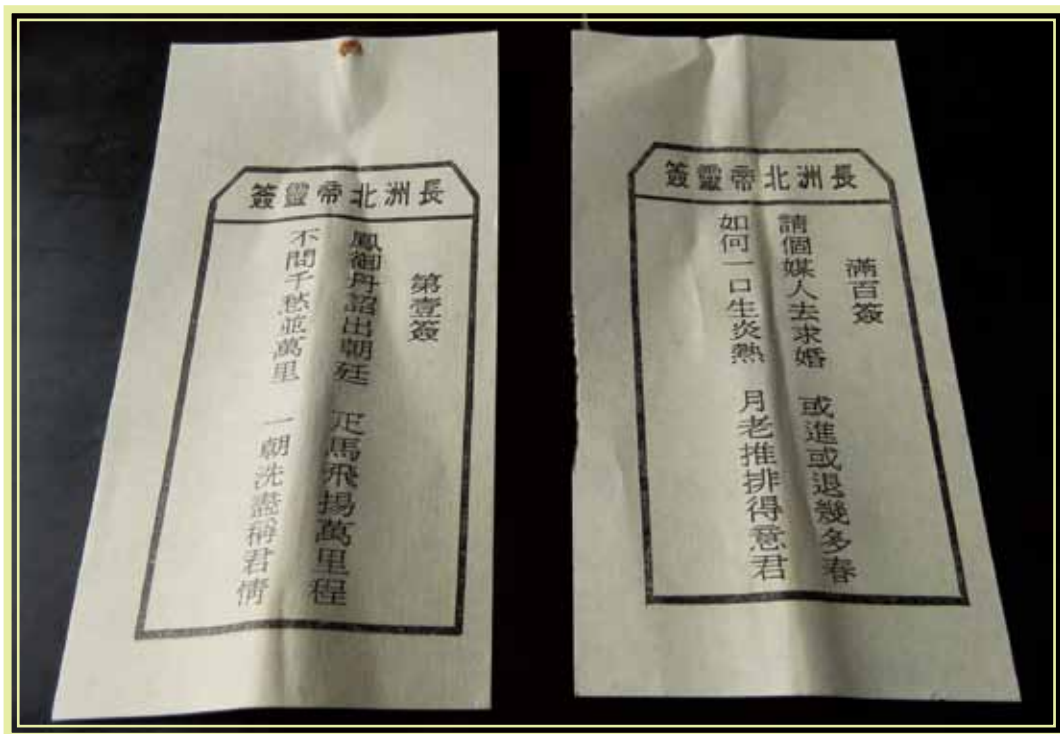 長洲北帝靈簽
第壹簽
鳳御丹詔出朝廷 疋馬飛揚萬里程
不問千愁並萬里 一朝洗盡稱君情
長洲北帝靈簽
滿百簽
請個媒人去求婚 或進或退幾多春
如何一口生炎熱 月老推排得意君